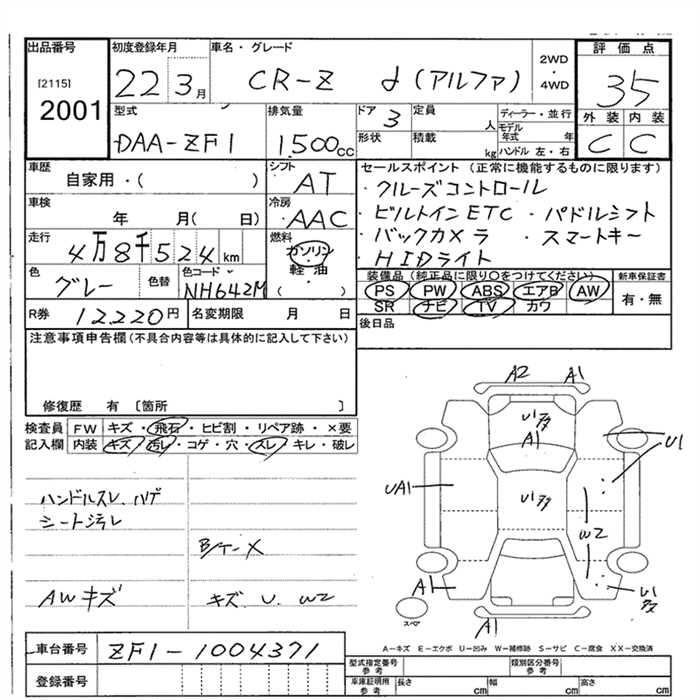 出品番号 初度登録年月 車名・グレード 2WD・4WD 評価点
[2115] 2001 22 3月 CR-Z α(アルファ) 35
外装 内装
C C
型式 DAA-ZF1 排気量 1,500cc ドア 3 定員 人 ディーラー・並行
形状 積載 kg モデル年式 年
ハンドル 左・右
車歴 自家用・( ) シフト AT セールスポイント(正常に機能するものに限ります)
・クルーズコントロール
車検 年 月( 日) 冷房 AAC ・ビルトインETC ・パドルシフト
走行 4万8千524km 燃料 ガソリン・軽油・( ) ・バックカメラ ・スマートキー
・HIDライト
色 グレー 色替 色コード NH642M 装備品(純正品に限り○をつけてください) 新車保証書
PS PW ABS エアB AW 有・無
SR ナビ TV カワ
R券 12220円 名変期限 月 日 後日品
注意事項申告欄(不具合内容等は具体的に記入して下さい)
修復歴 有 〔箇所 〕
検査員 FW キズ・飛石・ヒビ割・リペア跡・×要
記入欄 内装 キズ・汚れ・コゲ・穴・スレ・キレ・破レ
ハンドルスレ、ハゲ
シート汚レ
B/T-X
AWキズ キズ U W2
A2 A1
U1
A1
U1
UA1
U1
W2
A1
U1
A1
スペア
A－キズ E－エクボ U－凹み W－補修跡 S－サビ C－腐食 XX－交換済
車台番号 ZF1-1004371
登録番号
型式指定番号 参考 類別区分番号 参考
車庫証明用 参考 長さ cm 幅 cm 高さ cm